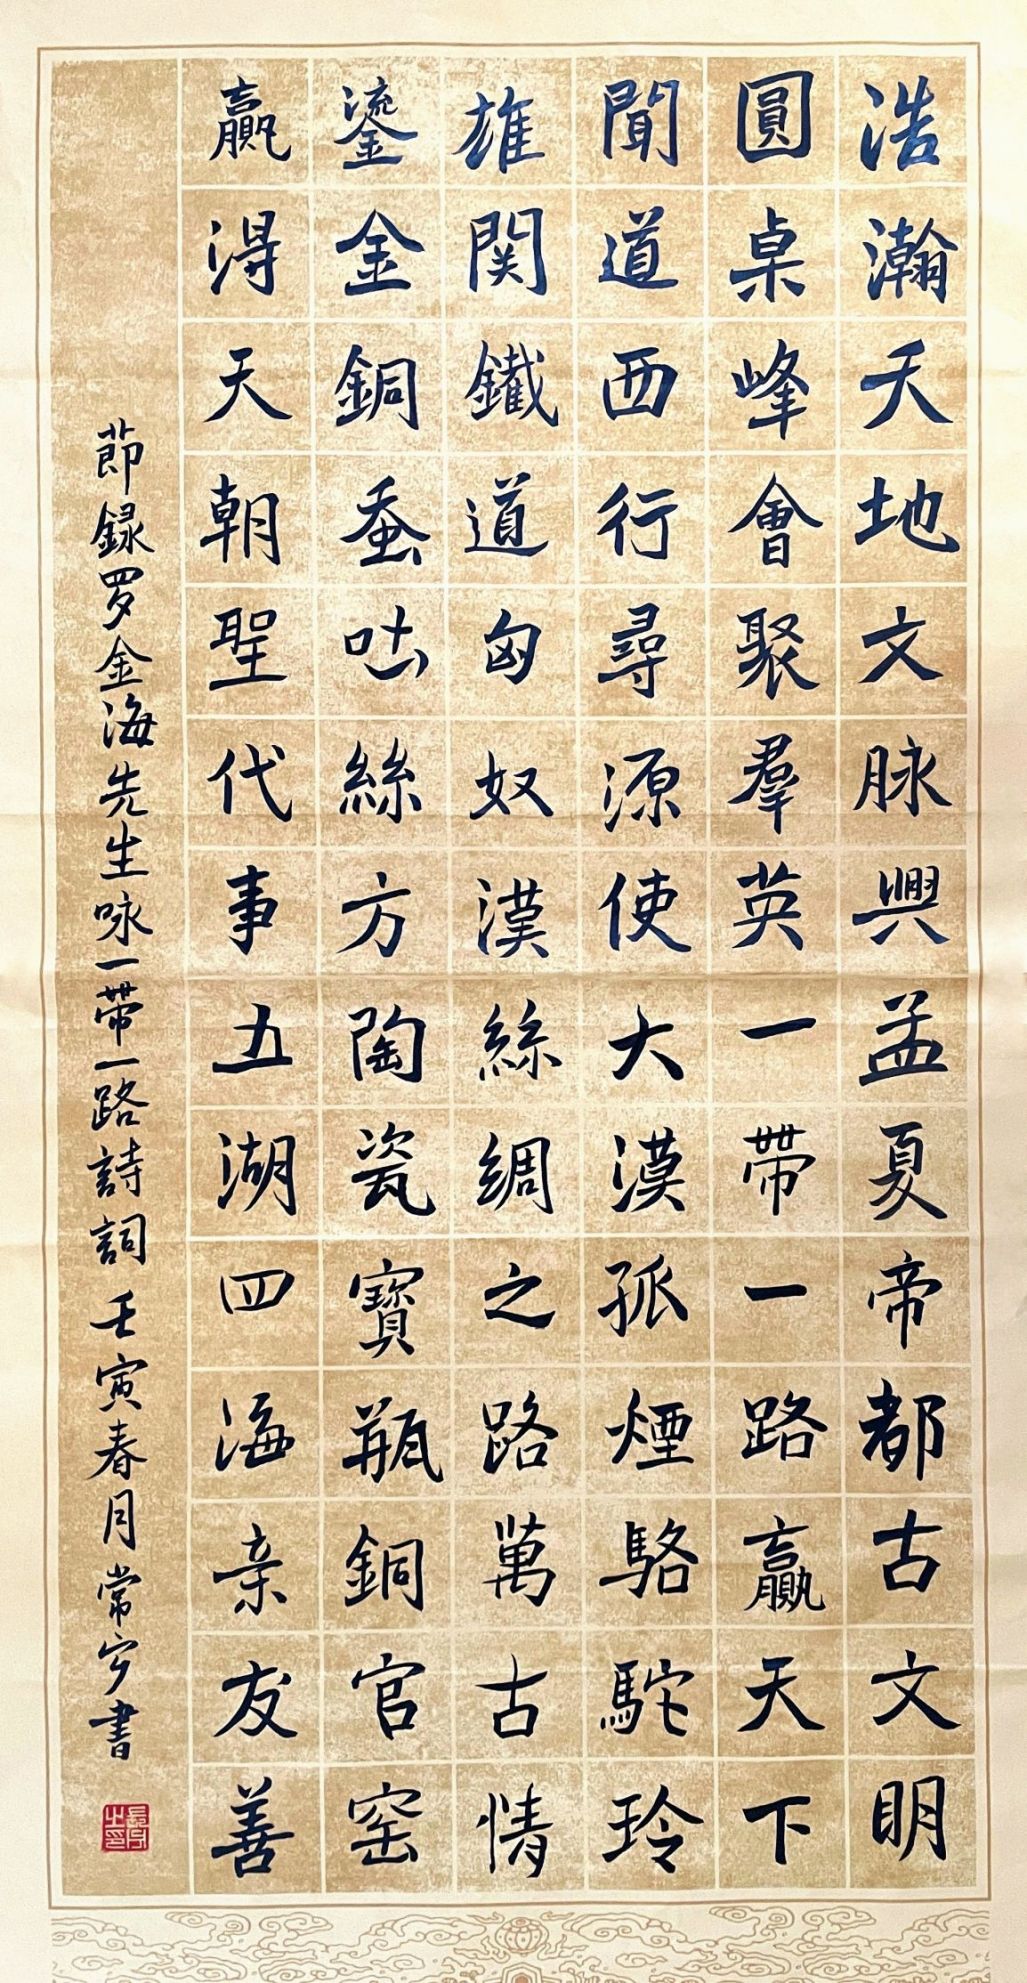 浩瀚天地文脉興孟夏帝都古文明
圓桌峰會聚羣英一帶一路贏天下
聞道西行尋源使大漠孤煙駱駝玲
雄関鐵道匈奴漢絲綢之路萬古情
鎏金銅蚕咕絲方陶瓷寶瓶銅官窑
贏得天朝聖代事五湖四海亲友善
節録罗金海先生咏一帶一路詩詞 壬寅春月常宁書